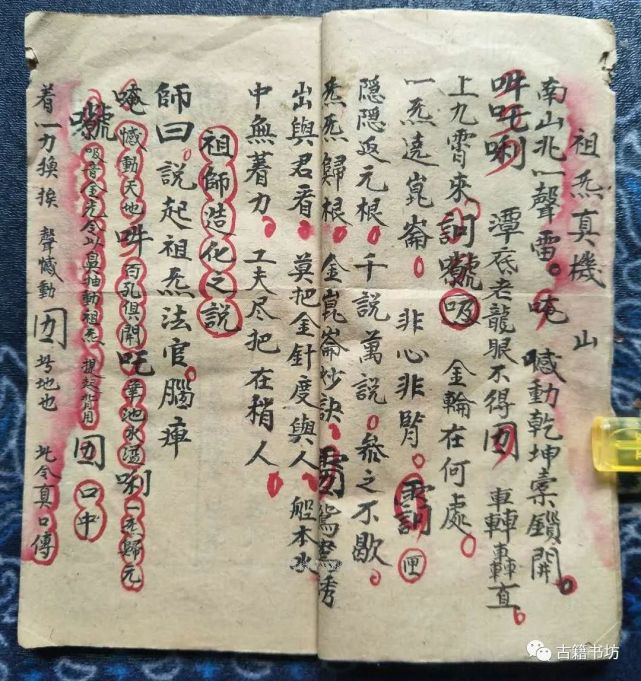 祖炁真機
山
南山兆一聲雷。唵 憾動乾坤橐鎖開。
吽吒唎 潭底老龍眼不得 轟轟直
上九霄來 訶 吸 金輪在何處。
一炁遶崑崙。 非心非腎。 訶
隱隱返元根。千說萬說。參之不歇
炁炁歸根。金崑崙妙訣。 鴛鴦秀
出與君看 莫把金針度與人 船本水
中無着力。 工夫尽把在稍人
祖師造化之說
師曰。說起祖炁法官腦庫
唵 憾動天地 吽 勻孔俱開 吒 華池水湧 唎 一炁歸元
吸音金光令以鼻抽動祖炁 口中
着一力換換 聲憾動 地也 此令真口傳
古籍书坊